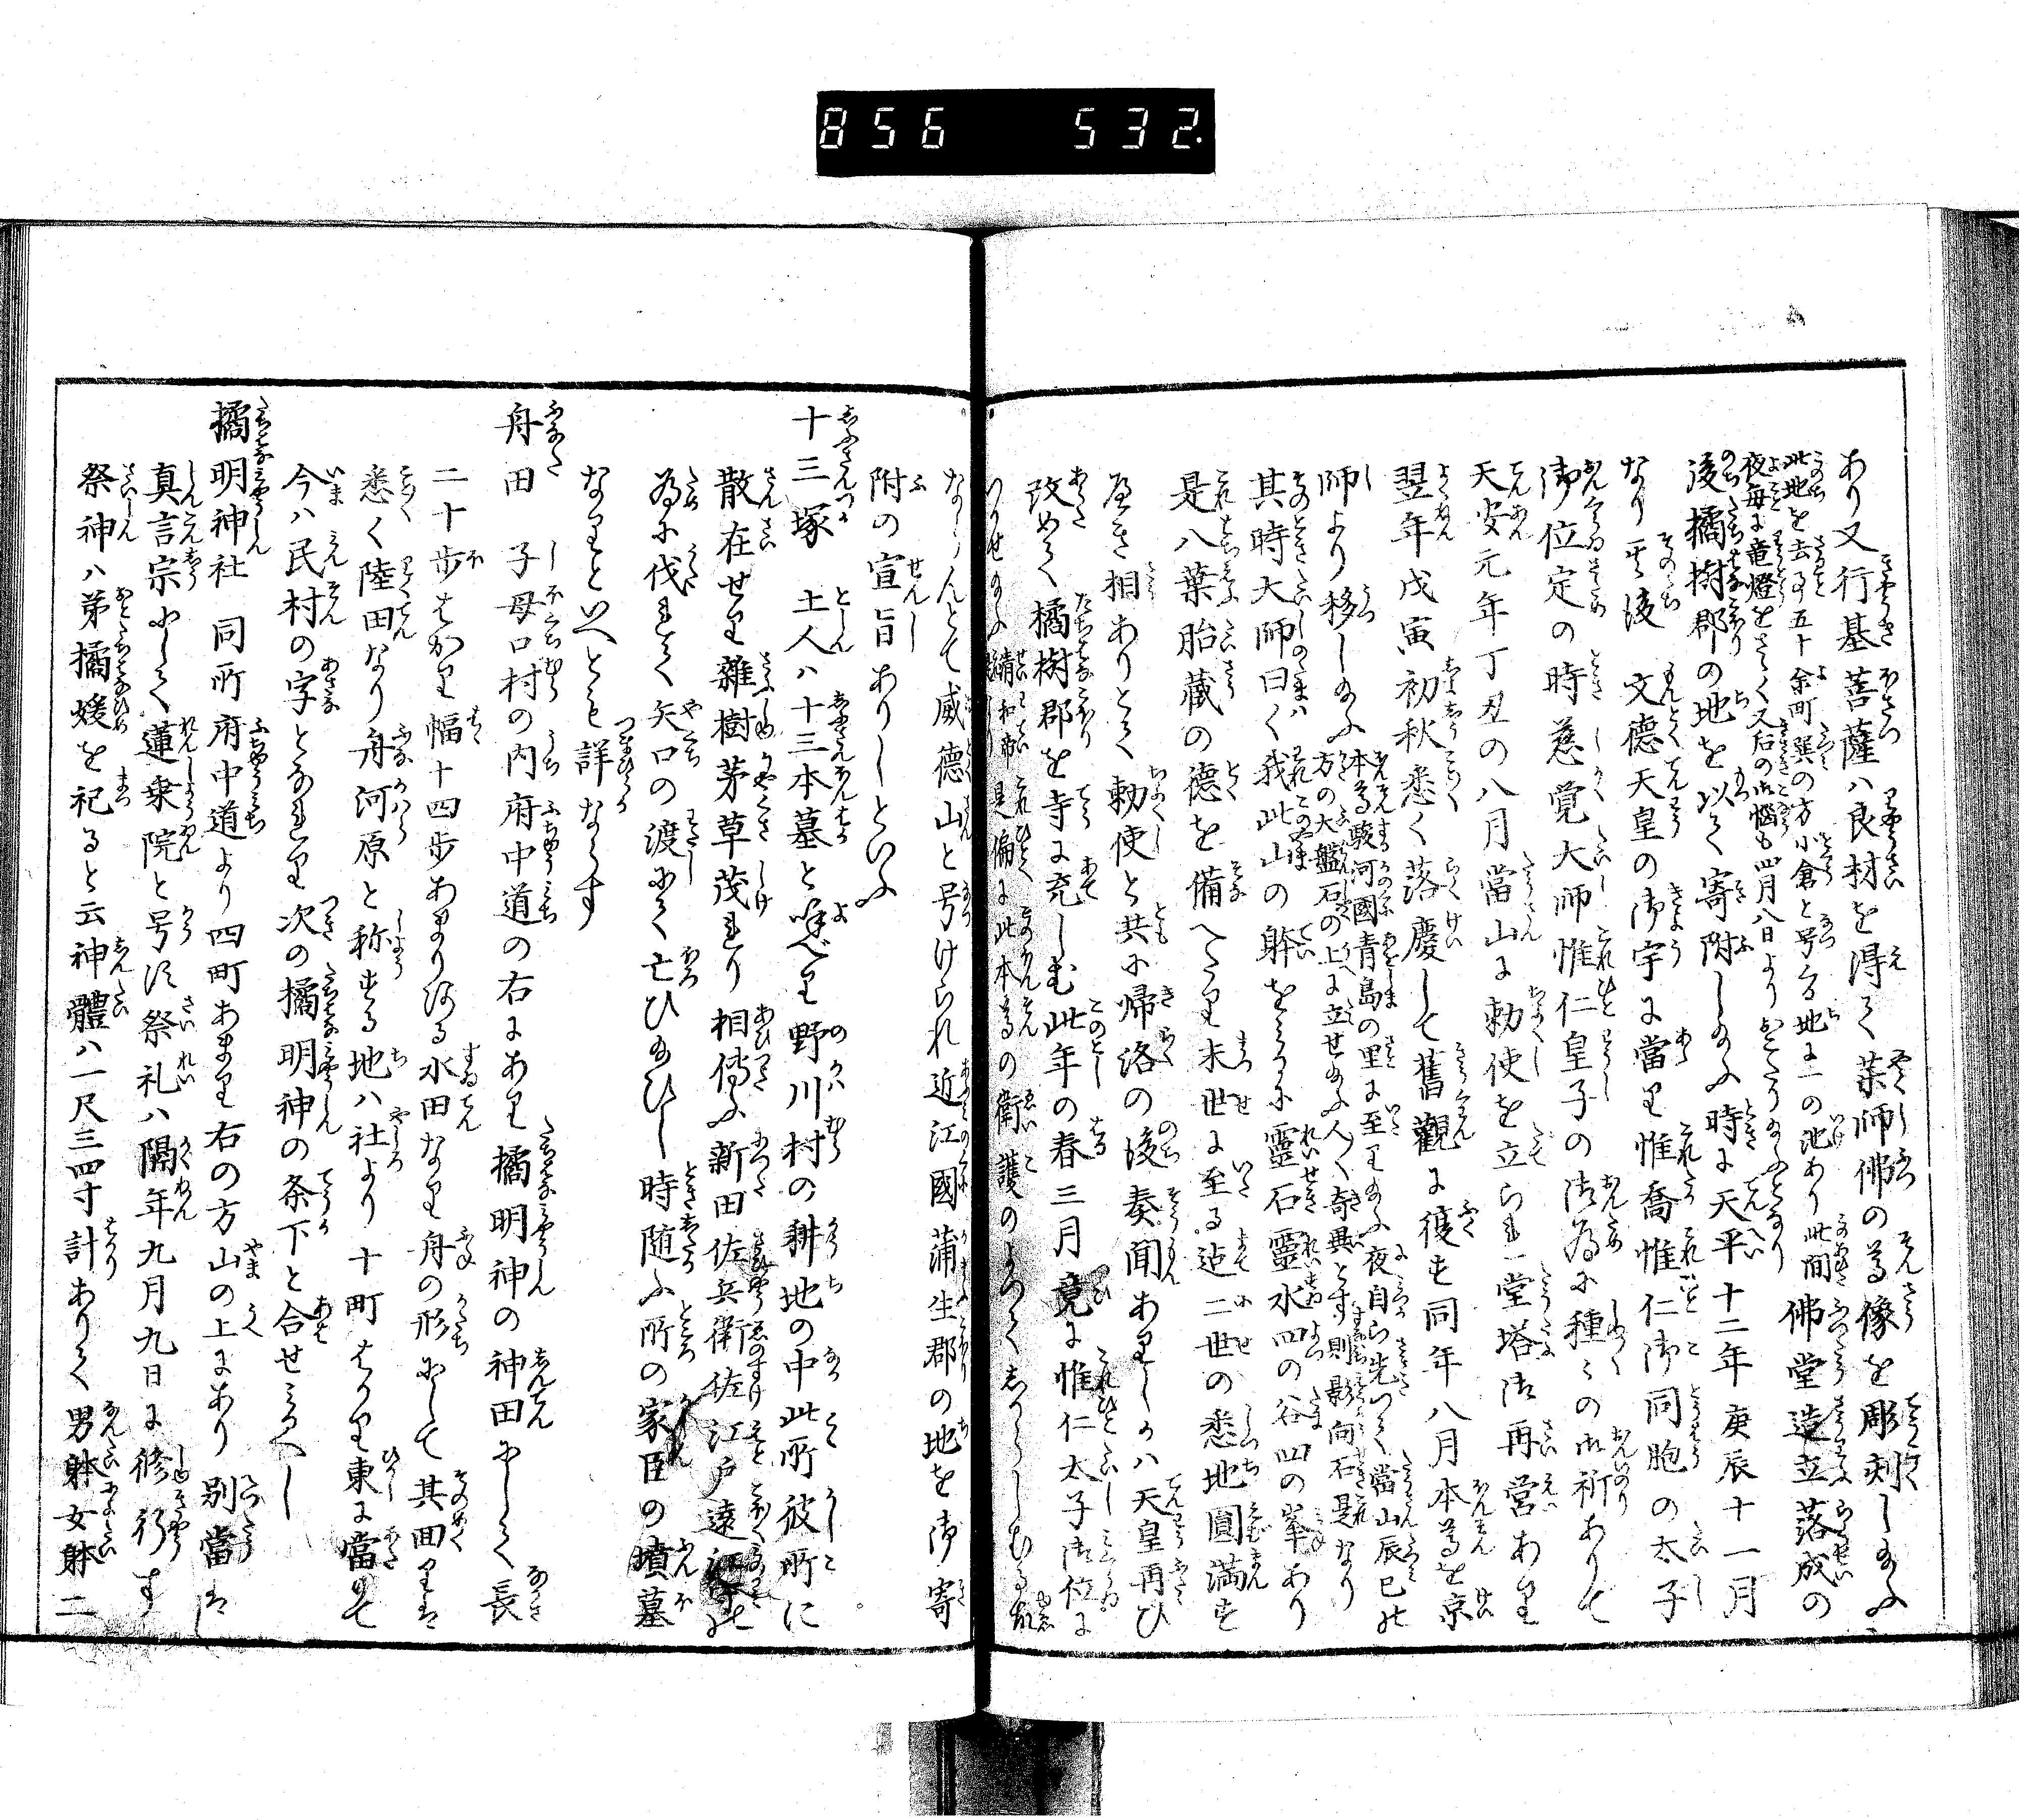 856 532.
あり又行基菩薩ハ良材を得て薬師佛の尊像を彫刻し給ふ
此地を去る事五十余町巽の方小倉と号る地に一の池あり此間
夜毎に竜燈をさゝく又后の御悩も四月八日よりおこたり給ふとなり
佛堂造立落成の
後橘樹郡の地を以て寄附し給ふ時に天平十二年庚辰十一月
なり其後 文徳天皇の御宇に當り惟喬惟仁御同胞の太子
御位定の時慈覚大師惟仁皇子の御為に種〻の御祈ありて
天安元年丁丑の八月當山に勅使を立られ堂塔御再営あり
翌年戊寅初秋悉く落慶して舊觀に復す同年八月本尊を京
師より移し給ふ
本尊駿河國青島の里に至り給ふ夜自ら光つく當山辰巳の
方の大盤石の上に立せ給ふ人〻奇異とす則影向石是なり
其時大師曰く我此山の躰をみるに靈石靈水四の谷四の峯あり
是八葉胎蔵の徳を備へたり末世に至る迄二世の悉地圓満す
へき相ありとて勅使と共に帰洛の後奏聞ありしかハ天皇再ひ
改めて橘樹郡を寺に充しむ此年の春三月竟に惟仁太子御位に
つかせ給ふ
清和帝
是偏に此本尊の衛護のよつてしからしむる故
ならんとて威徳山と号けられ近江國蒲生郡の地を御寄
附の宣旨ありしといふ
十三塚 土人ハ十三本墓と唤べり野川村の耕地の中此所彼所に
散在せり雜樹茅草茂れり相傳ふ新田佐兵衛佐江戸遠江守の
為に伐れて矢口の渡にて亡ひ給ひし時随ふ所の家臣の墳墓
なりといへとも詳ならす
舟田 子母口村の内府中道の右にあり橘明神の神田にして長
二十歩はかり幅十四歩あまりある水田なり舟の形にして其回りは
悉く陸田なり舟河原と称する地ハ社より十町はかり東に當りて
今ハ民村の字となれり次の橘明神の条下と合せみるへし
橘明神社 同所府中道より四町あまり右の方山の上にあり別當は
真言宗にして蓮乗院と号す祭礼ハ隔年九月九日に修行す
祭神ハ弟橘媛を祀ると云神體ハ一尺三四寸計ありて男躰女躰二